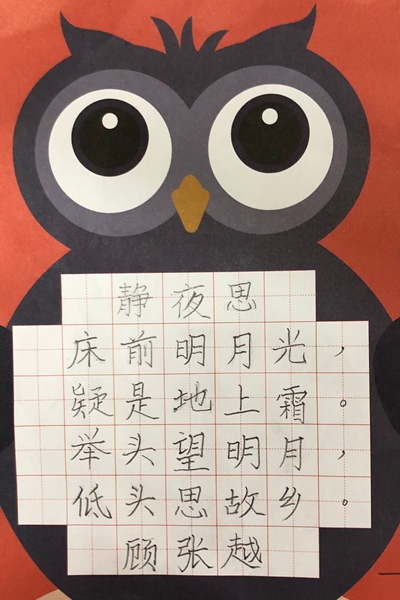 静夜思
床前明月光，
疑是地上霜。
举头望明月，
低头思故乡。
顾张越